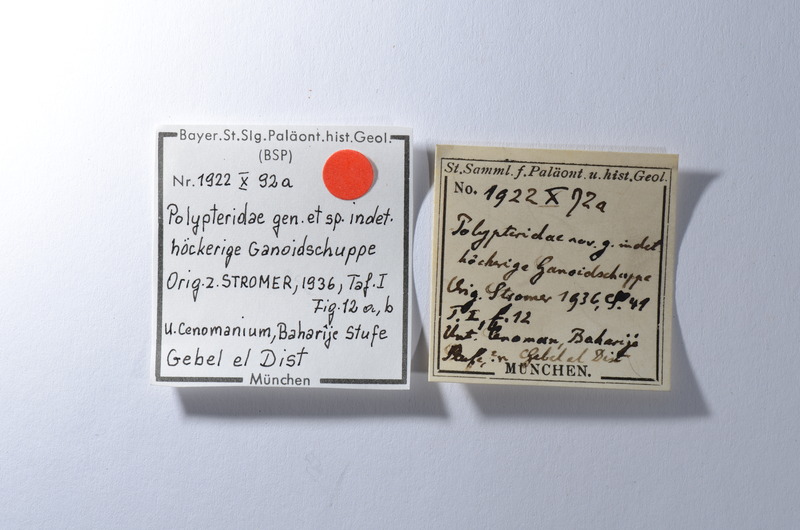 Bayer.St.Slg.Paläont.hist.Geol.
(BSP)
Nr.1922 X 92a
Polypteridae gen. et sp. indet.
höckerige Ganoidschuppe
Orig.z.STROMER, 1936, Taf.I
Fig.12 a, b
u.Cenomanium, Baharije Stufe
Gebel el Dist
München
St.Samml.f.Paläont.u.hist.Geol.
No. 1922 X 92a
Polypteridae nov. g. indet
höckerige Ganoidschuppe
Orig. Stromer 1936, S. 41
T. I, f. 12
Unt. Cenoman, Baharije
Stufe, Gebel el Dist
MÜNCHEN.